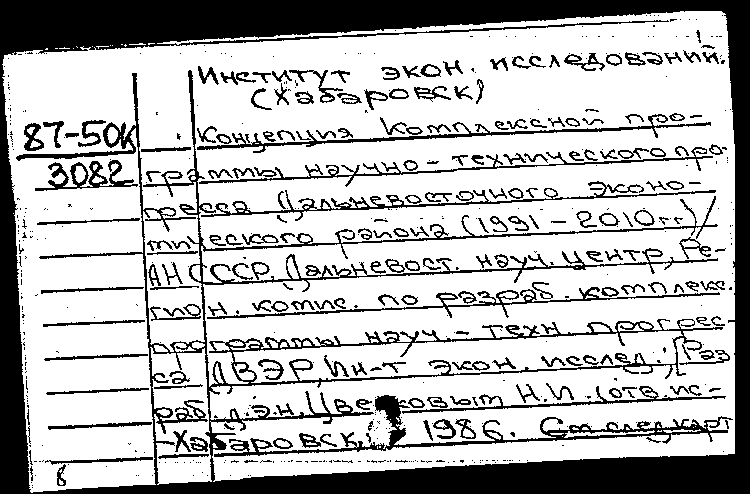 Институт экон. исследований.
(Хабаровск)
87-50К
3082
Концепция комплексной про-
граммы научно-технического про-
гресса Дальневосточного эконо-
мического района (1991-2010гг)/
АН СССР. Дальневост. науч. центр, Ре-
гион. комис. по разраб. комплекс.
программы науч.-техн. прогрес-
са ДВЭР, Ин-т экон. исслед.; [Раз
раб. д.э.н. Н.И. (отв. ис-
Хабаровск, 1986. См след карт
8